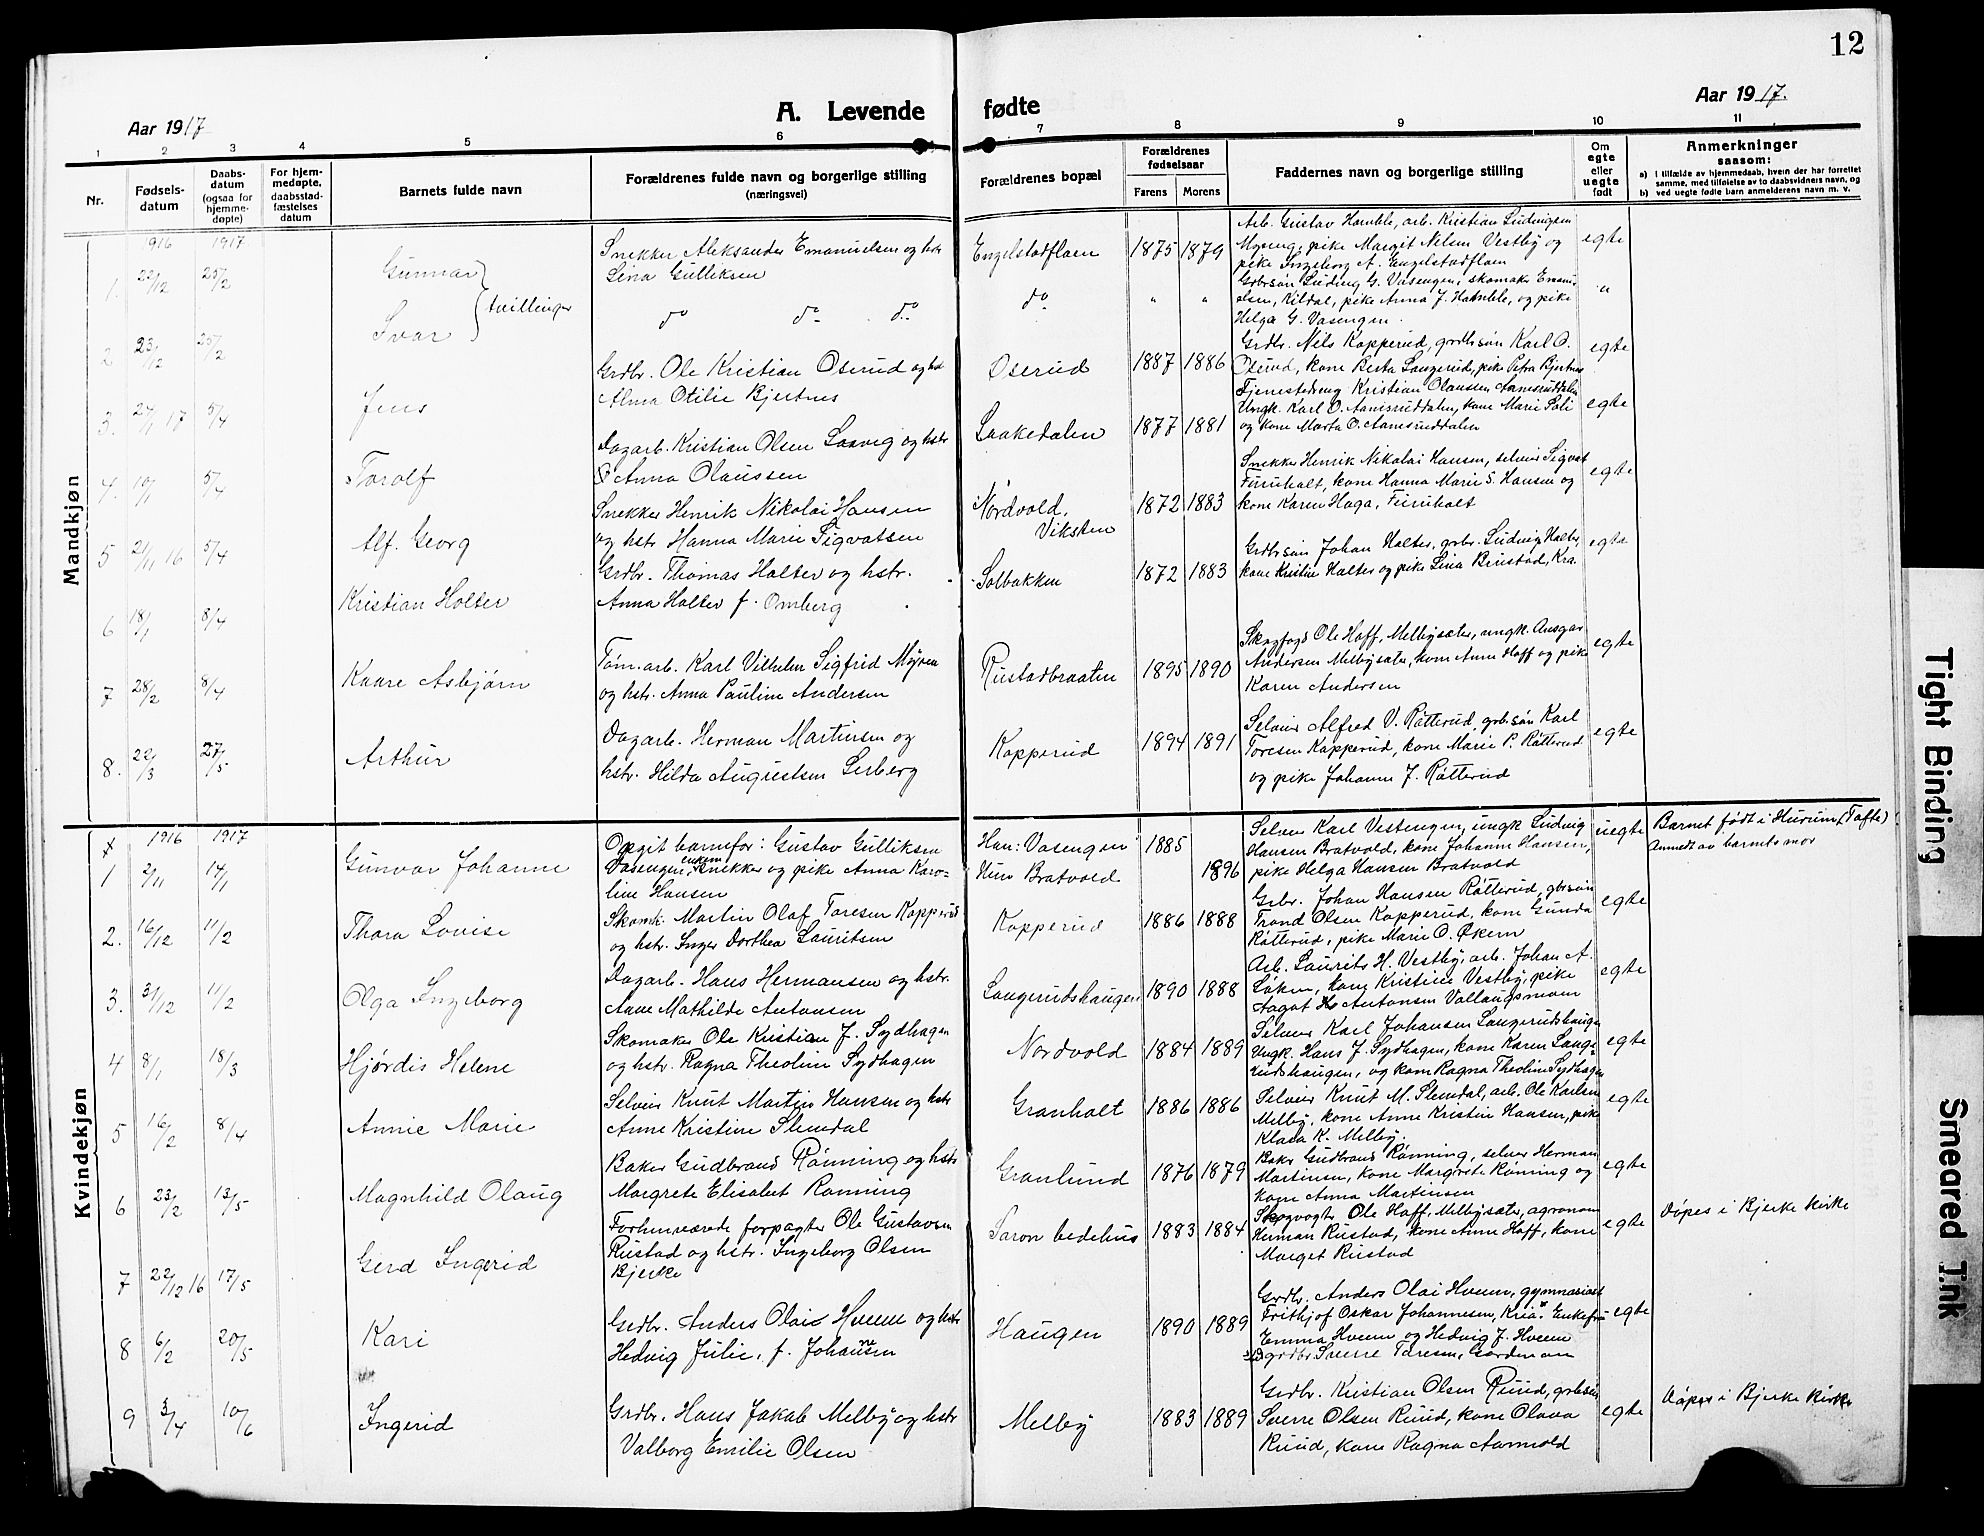 12
Aar 1917
A. Levende
fødte
Aar 1917.
1 2 3 4 5 6 7 8 9 10 11
Nr.
Fødsels-
datum
Daabs-
datum
(ogsaa for
hjemme-
døpte)
For hjem-
medøpte,
daabsstad-
fæstelses
datum
Barnets fulde navn
Forældrenes fulde navn og borgerlige stilling
(næringsvei)
Forældrenes bopæl
Forældrenes
fødselsaar
Farens Morens
Faddernes navn og borgerlige stilling
Om
egte
eller
uegte
født
Anmerkninger
saasom:
a) i tilfælde av hjemmedaab, hvem der har forrettet
samme, med tilføielse av to daabsvidners navn, og
b) ved uegte fødte barn anmelderens navn m. v.
Mandkjøn
1916 1917
1. 23/12 25/2 Gunnar } tvillinger
Snekker Aleksander Emanuelsen og hstr
Lina Gulliksen
Engelstadflaen 1875 1879
Arb. Gustav Hamble, arb. Kristian Ludvigsen
Myreng, pike Margit Nelsen Vestby og
pike Ingeborg A. Engelstadflaen
egte
2. 23/12 25/2 Ivar
do do do
do " "
Grdbrsøn Ludvig G. Vasengen, skomaker Emanu-
elsen, Kildal, pike Anna J. Hamble, og pike
Helga G. Vasengen.
"
3. 24/1 17 5/4 Jens
Grdbr. Ole Kristian Oserud og hstr
Alma Otilie Bjertnes
Oserud 1887 1886
Grdbr. Nils Kopperud, grdbrsøn Karl O.
Oserud, kone Berta Langerud, pike Petra Bjertnes
egte
4. 10/1 5/4 Torolf
Dagarb. Kristian Olsen Laavig og hstr
Anna Olaussen
Laakedalen 1877 1881
Tjenestedreng Kristian Olaussen Aamsruddalen
Ungk. Karl O. Aamsruddalen, kone Marie Soli
og kone Marta O. Aamsruddalen
egte
5 21/11 16 5/4 Alf Georg
Snekker Henrik Nikolai Hansen
og hstr Hanna Marie Sigvatsen
Nordvold, 1872 1883
Viksten
Snekker Henrik Nikolai Hansen, selveier Sigvat
Furuholt, kone Hanna Marie S. Hansen og
kone Karen Haga, Furuholt
egte
6 18/1 8/4 Kristian Holter
Grdbr. Thomas Holter og hstr.
Anna Holter f. Omberg
Solbakken 1872 1883
Grdbrsøn Johan Holter, grbr. Ludvig Holter,
kone Kristine Holter og pike Lina Brustad, Kra.
egte
7 28/2 8/4 Kaare Asbjørn
Tøm.arb. Karl Vilhelm Sigfrid Myren
og hstr. Anna Pauline Andersen
Rustadbraaten 1895 1890
Skogfogd Ole Hoff, Melbysæter, ungk. Ansgar
Andersen Melbysæter, kone Anne Hoff og pike
Karen Andersen
egte
8. 22/3 27/5 Arthur
Dagarb. Herman Martinsen og
hstr. Hilda Augustsen Lerberg
Kopperud 1894 1891
Selveier Alfred V. Røtterud, grbrsøn Karl
Toresen Kopperud, kone Marie P. Røtterud
og pike Johanne J. Røtterud
egte
Kvindekjøn
1916 1917
1 2/11 14/1 Gunvor Johanne
Opgit barnefar: Gustav Gulliksen
Vasengen, snekker og pike Anna Karo-
line Hansen
Han: Vasengen 1885
Hun Bratvold 1896
Selveier Karl Vestengen, ungk Ludvig
Hansen Bratvold, kone Johanne Hansen,
pike Helga Hansen Bratvold
uegte
Barnet født i Hurum (Tofte)
Anmeldt av barnets mor
2. 16/12 11/2 Thora Lovise
Skomk. Martin Olaf Toresen Kopperud
og hstr. Inger Dorthea Lauritsen
Kopperud 1886 1888
Grbr. Johan Hansen Røtterud, gbrsøn
Trond Olsen Kopperud, kone Gunda
Røtterud, pike Marie O. Økern
egte
3. 31/12 11/2 Olga Ingeborg
Dagarb. Hans Hermansen og hstr.
Anne Mathilde Antonsen
Langerudshaugen 1890 1888
Arb. Laurits H. Vestby, arb. Johan A.
Løken, kone Kristine Vestby, pike
Aagot Antonsen Vallaugsmoen
egte
4 8/1 18/3 Hjørdis Helene
Skomaker Ole Kristian J. Sydhagen
og hstr. Ragna Theoline Sydhagen
Nordvold 1884 1889
Selveier Karl Johansen Langerudshaugen
Ungk. Hans J. Sydhagen, kone Karen Lange-
rudshaugen, og kone Ragna Theoline Sydhagen
egte
5 16/2 8/4 Annie Marie
Selveier Knut Martin Hansen og hstr
Anne Kristine Slemdal
Granholt 1886 1886
Selveier Knut M. Slemdal, arb. Ole Karlsen
Melby, kone Anne Kristine Hansen, pike
Klara K. Melby.
egte
6 23/2 13/5 Magnhild Olaug
Baker Gudbrand Rønning og hstr
Margrete Elisabet Rønning
Granlund 1876 1879
Baker Gudbrand Rønning, selveier Herman
Martinsen, kone Margrete Rønning og
kone Anna Martinsen
egte
7 22/12 16 17/5 Gerd Ingerid
Forhenværende forpagter Ole Gustavsen
Rustad og hstr. Ingeborg Olsen
Bjerke
Saron bedehus 1883 1884
Skogvogter Ole Hoff, Melbysæter, agronom
Herman Rustad, kone Anne Hoff, kone
Marget Rustad
egte
Døpes i Bjerke kirke
8 6/2 20/5 Kari
Grdbr. Anders Olai Hveem og hstr
Hedvig Julie, f. Johannesen
Haugen 1890 1889
Grdbr. Anders Olai Hveem, gymnasiast
Frithjof Oskar Johannesen, Kria. Enkefru
Emma Hveem og Hedvig J. Hveem
grdbr Sverre Toresen, Gardmoen
egte
9 3/4 10/6 Ingerid
Grdbr. Hans Jakob Melby og hstr
Valborg Emilie Olsen
Melby 1883 1889
Grdbr. Kristian Olsen Ruud, grbrsøn
Sverre Olsen Ruud, kone Olava
Ruud, kone Ragna Aamold
egte
Døpes i Bjerke kirke
Tight Binding
Smeared Ink